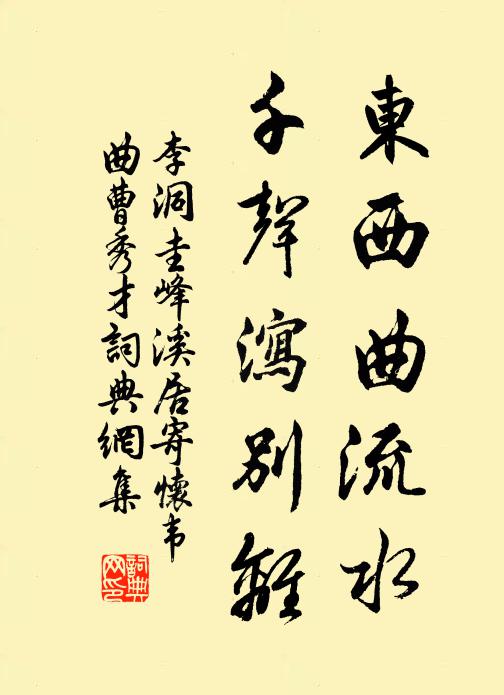 東西曲流水
千聲瀉別離
李洞圭峰溪居寄懷韦
曲曹秀才詞典網集
詞典
网印